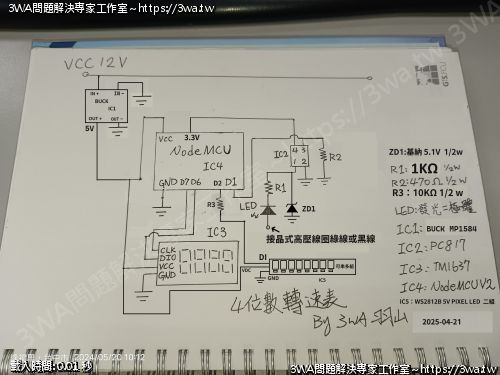 3WA問題解決專家工作室~https://3wa.tw
3WA問題解決專家工作室~https://3wa.tw
VCC 12V
IN + IN -
BUCK
IC1
OUT + OUT -
5V
VCC 3.3V
NodeMCU
IC4
GND D7 D6 D2 D1
IC2
4 3
1 2
R2
R1
LED
ZD1
R3
接晶式高壓線圈綠線或黑線
IC3
CLK
DIO
VCC
GND
DI
VDC
GND
可串多組
IC5
4位數轉速表
By 3WA 羽山
ZD1:基納 5.1V 1/2w
R1: 1KΩ 1/2w
R2: 470Ω 1/2w
R3:10KΩ 1/2 w
LED:發光二極體
IC1: BUCK MP1584
IC2: PC817
IC3: TM1637
IC4: NodeMCU V2
IC5 : WS2812B 5V PIXEL LED 二組
2025-04-21
2024/05/20 10:12
載入時間:0.01 秒
3WA問題解決專家工作室~https://3wa.tw